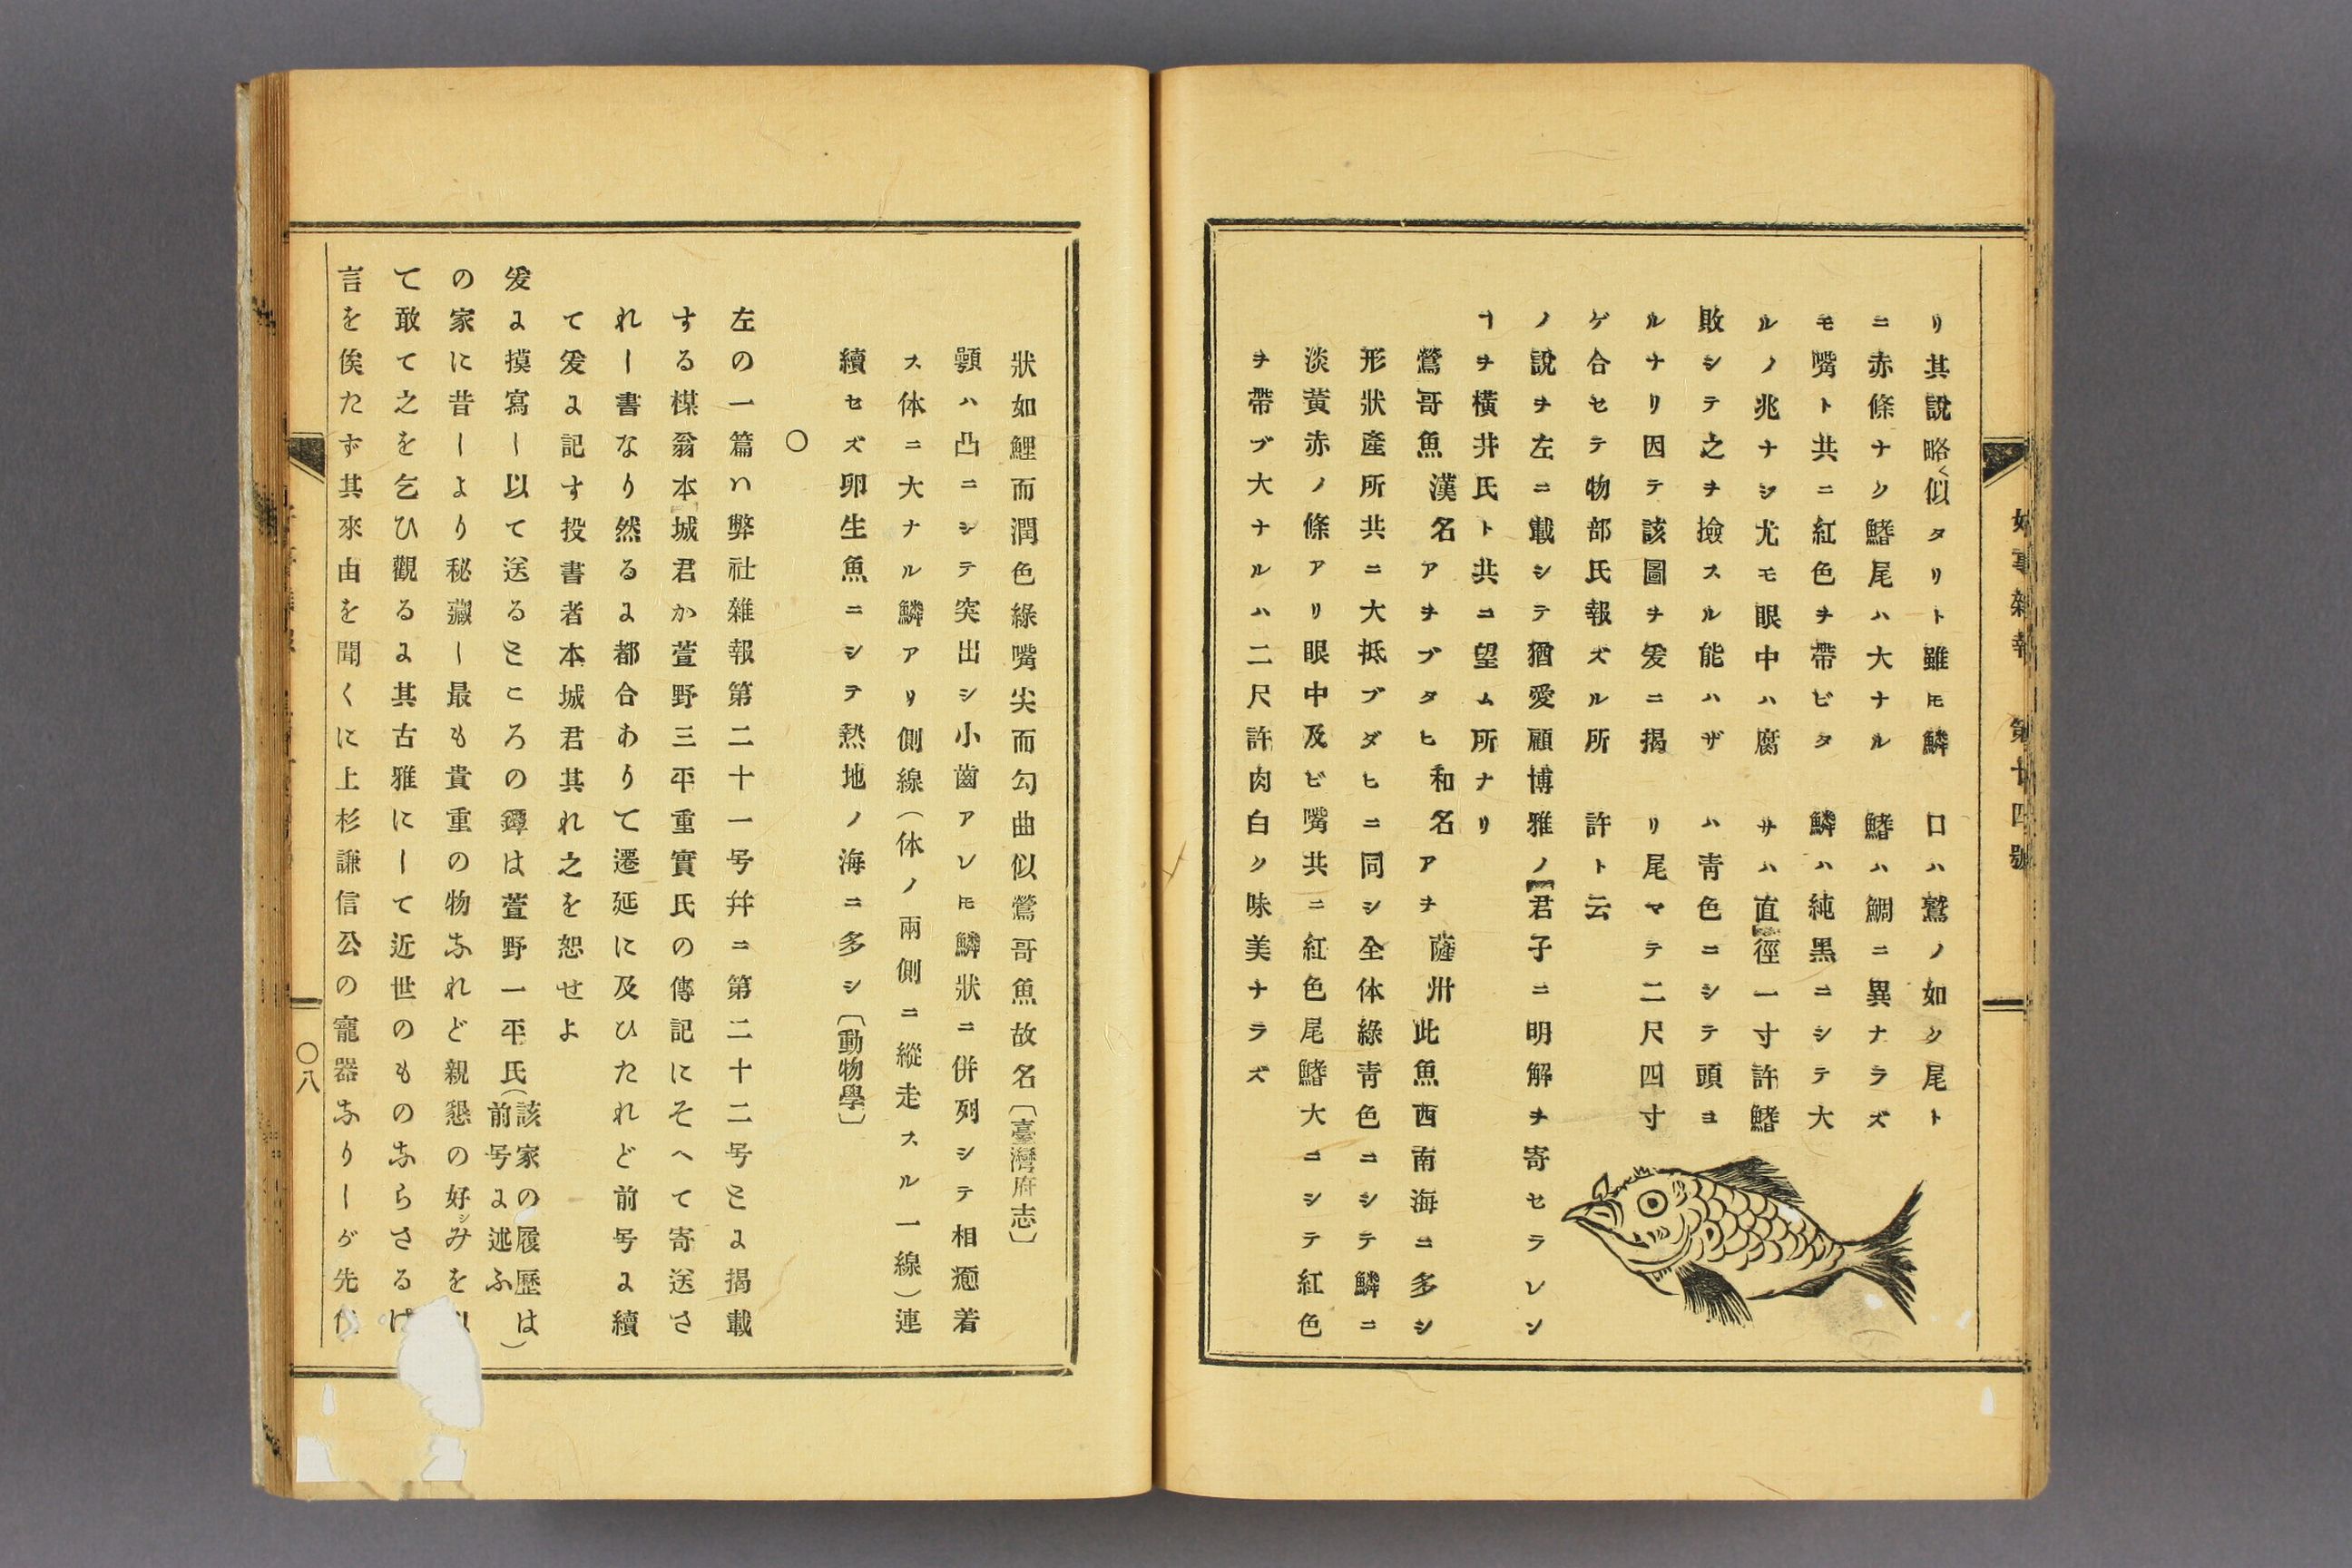 好事雜報　第廿四號
リ其說略く似タリト雖𪜈鱗
ニ赤條ナク鰭尾ハ大ナル
モ嘴ト共ニ紅色ヲ帶ビタ
ルノ兆ナシ尤モ眼中ハ腐
敗シテ之ヲ撿スル能ハザ
ルナリ因テ該圖ヲ爰ニ揭
ゲ合セテ物部氏報ズル所
ノ說ヲ左ニ載シテ猶愛顧博雅ノ君子ニ明解ヲ寄セラレン
ヿヲ橫井氏ト共ニ望ム所ナリ
口ハ鷲ノ如ク尾ト
鰭ハ鯛ニ異ナラズ
鱗ハ純黑ニシテ大
サハ直徑一寸許鰭
ハ靑色ニシテ頭ヨ
リ尾マテ二尺四寸
許ト云
鶯哥魚 漢名 アヲブタヒ 和名 アヲ 薩州 此魚西南海ニ多シ
形狀產所共ニ大抵ブダヒニ同シ全体綠靑色ニシテ鱗ニ
淡黃赤ノ條アリ眼中及ビ嘴共ニ紅色尾鰭大ニシテ紅色
ヲ帶ブ大ナルハ二尺許肉白ク味美ナラズ
狀如鯉而潤色綠嘴尖而勾曲似鶯哥魚故名〔臺灣府志〕
顎ハ凸ニシテ突出シ小齒アレ𪜈鱗狀ニ併列シテ相癒着
ス体ニ大ナル鱗アリ側線（体ノ兩側ニ縱走スル一線）連
續セズ卵生魚ニシテ熱地ノ海ニ多シ〔動物學〕
○
左の一篇ハ弊社雜報第二十一号幷ニ第二十二号とよ揭載
する楳翁本城君か萱野三平重實氏の傳記にそへて寄送さ
れし書なり然るよ都合ありて遷延に及ひたれど前号よ續
て爰よ記す投書者本城君其れ之を恕せよ
爰よ摸寫し以て送るところの鐔は萱野一平氏（該家の履歷は
前号よ述ふ）
の家に昔しより秘藏し最も貴重の物なれど親懇の好みを
て敢て之を乞ひ觀るよ其古雅にして近世のものならさるは
言を俟たず其來由を聞くに上杉謙信公の寵器なりしが先
○八